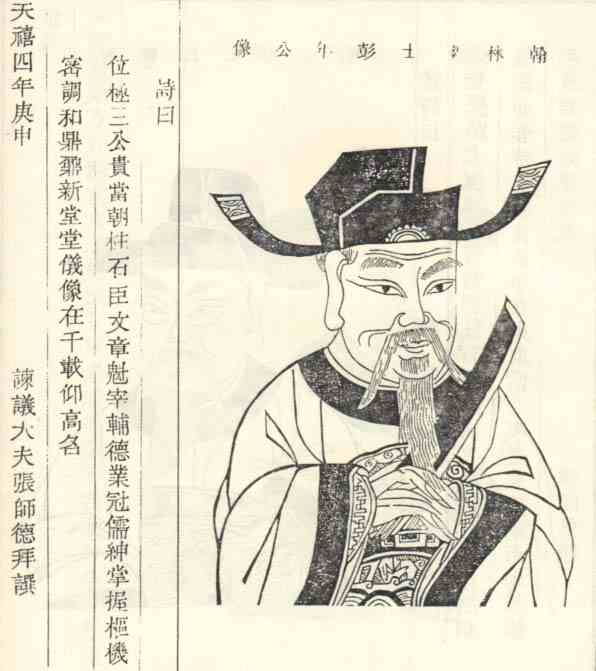 翰林學士彭年公像
詩曰
位極三公貴當朝柱石臣文章魁宰輔德業冠儒紳掌握樞機
密調和鼎鼐新堂堂儀像在千載仰高名
天禧四年庚申 諫議大夫張師德拜譔